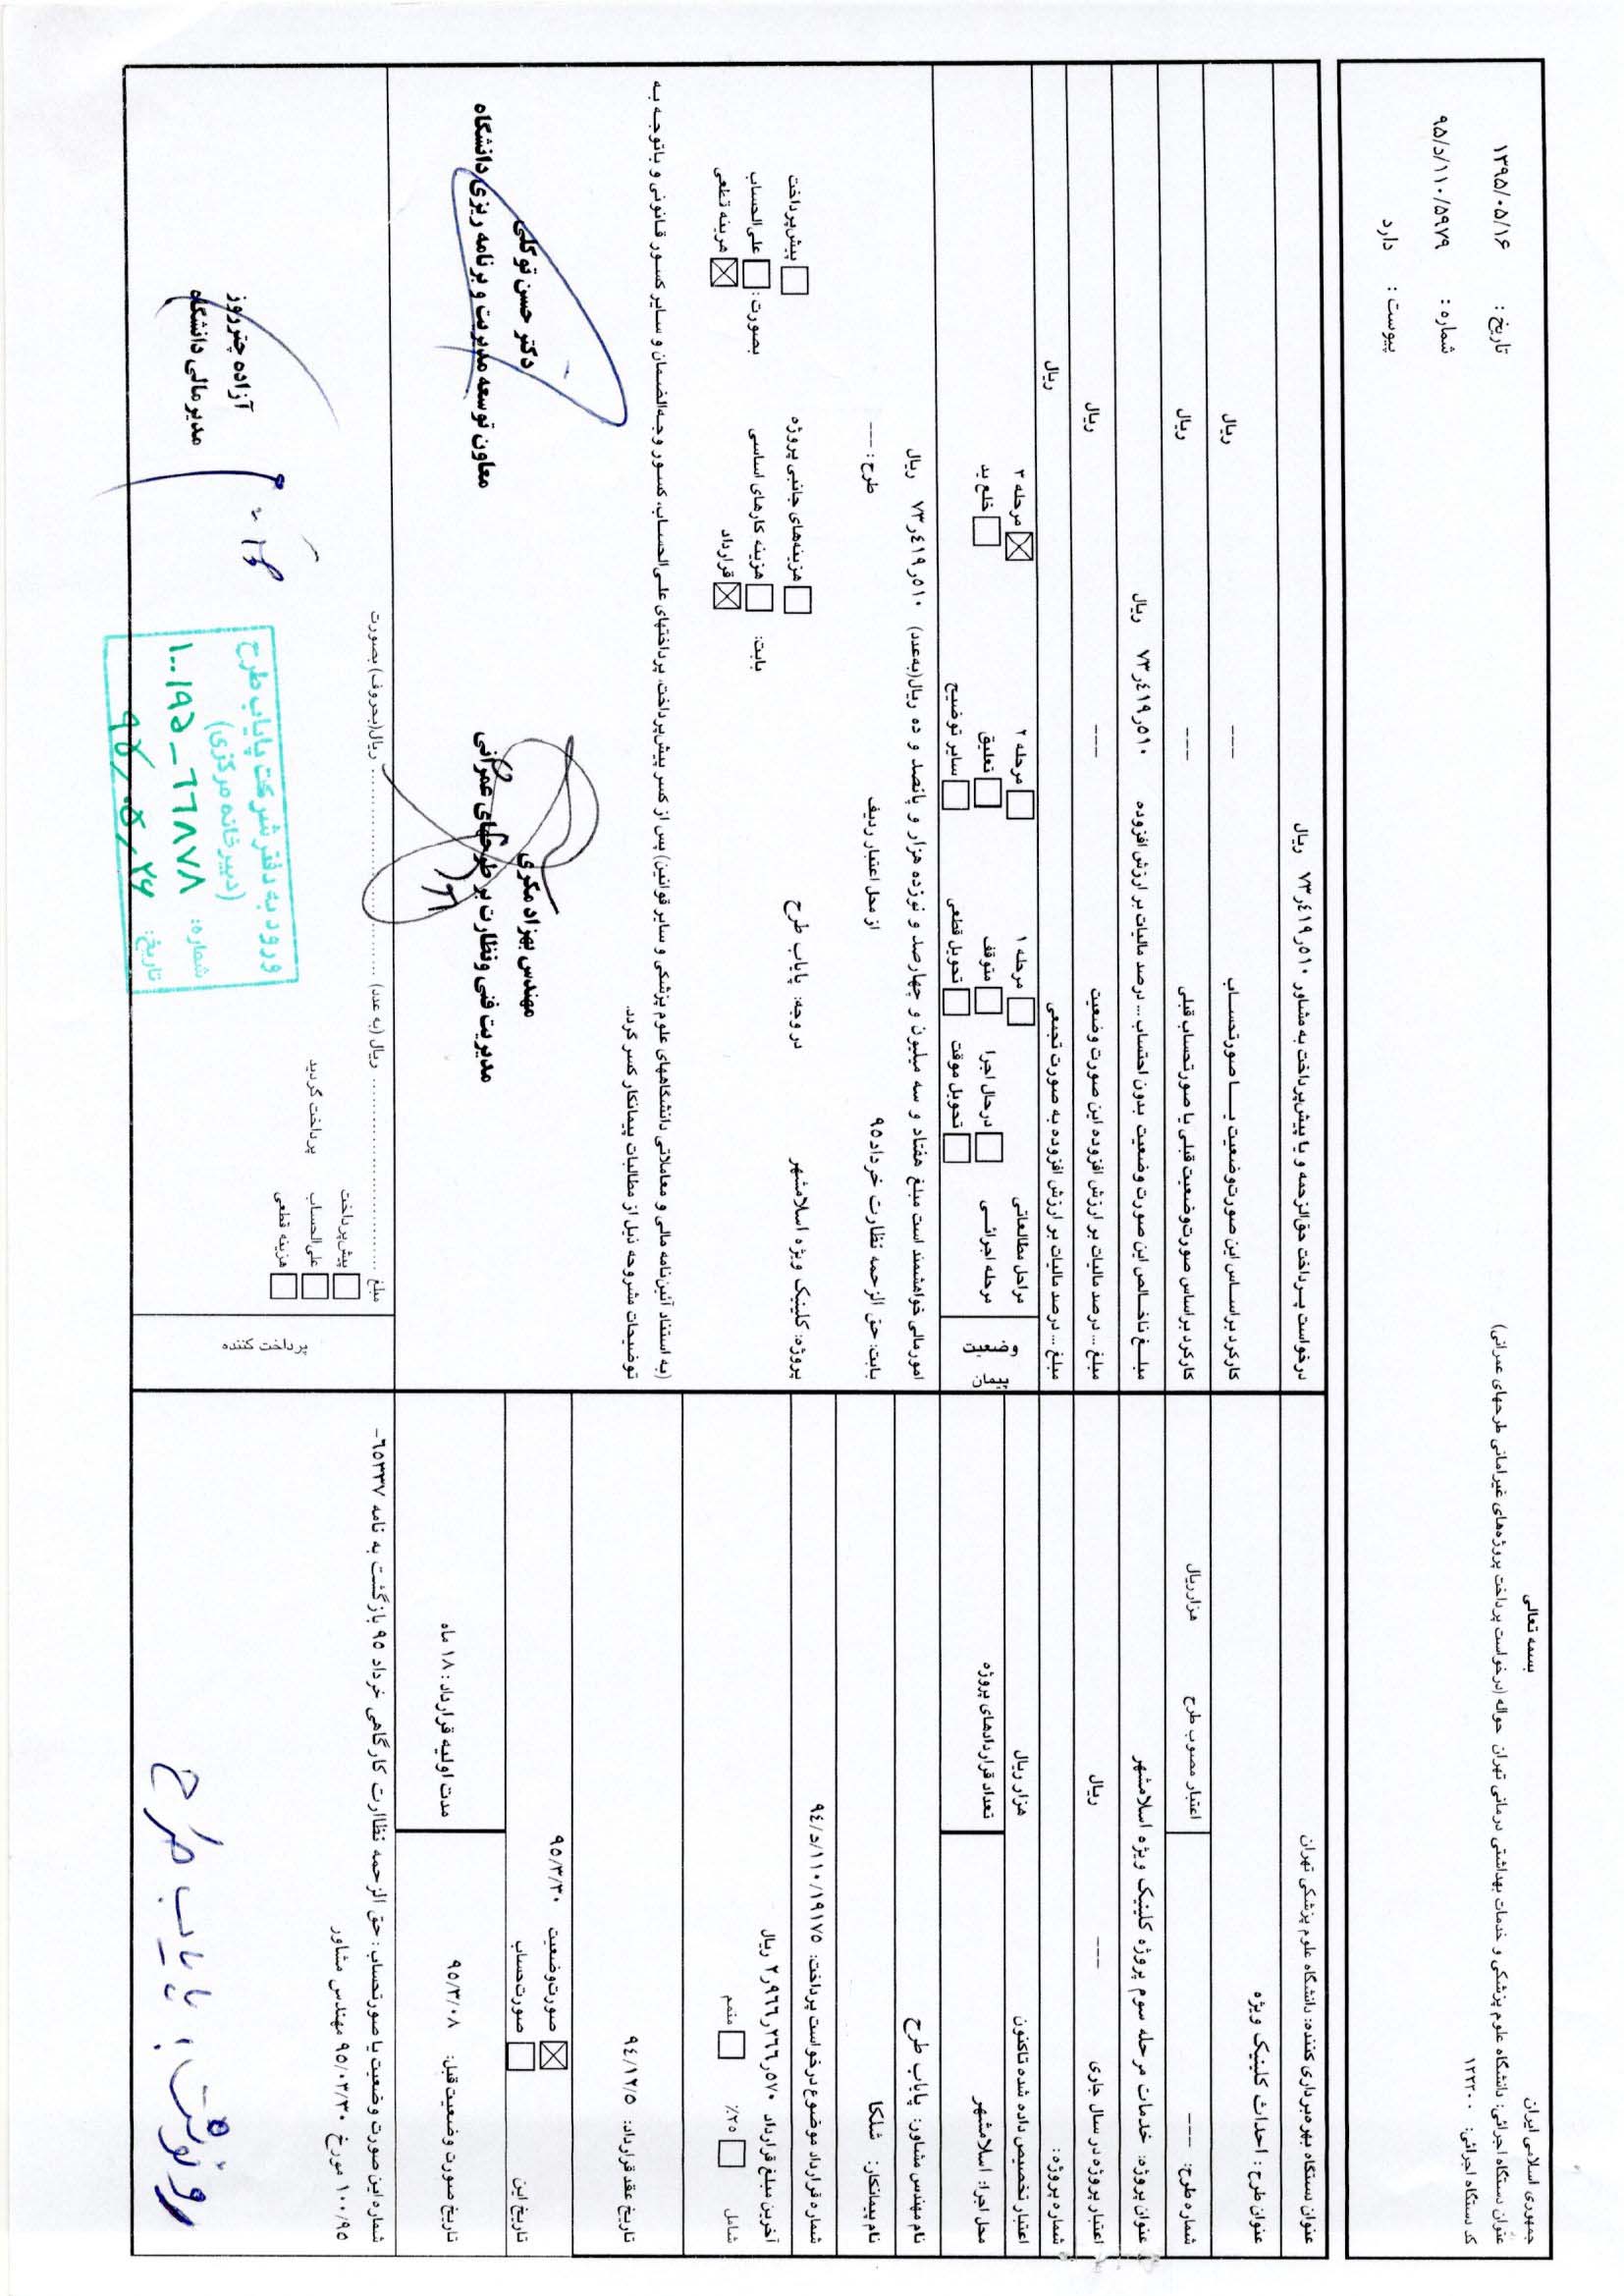 بسمه تعالی
جمهوری اسلامی ایران
عنوان دستگاه اجرائی: دانشگاه علوم پزشکی و خدمات بهداشتی درمانی تهران حواله (درخواست پرداخت پروژه‌های غیرامانی طرحهای عمرانی)
کد دستگاه اجرائی: ۱۲۲۲۰۰
تاریخ : ۱۳۹۵/۰۵/۱۶
شماره : ۹۵/د/۱۱۰/۵۹۷۹
پیوست : دارد
عنوان دستگاه بهره‌برداری کننده: دانشگاه علوم پزشکی تهران
عنوان طرح : احداث کلینیک ویژه
شماره طرح: ---- اعتبار مصوب طرح هزارریال
عنوان پروژه: خدمات مرحله سوم پروژه کلینیک ویژه اسلامشهر
اعتبار پروژه در سال جاری --- ریال
شماره پروژه:
اعتبار تخصیص داده شده تاکنون هزار ریال
محل اجرا: اسلامشهر تعداد قراردادهای پروژه
نام مهندس مشاور: پایاب طرح
نام پیمانکار: شلکا
شماره قرارداد موضوع درخواست پرداخت: ۹٤/د/۱۱۰/۱۹۱۷۵
آخرین مبلغ قرارداد ۲٫۹۶۶٫۲۶۶٫۵۷۰ ریال
شامل ۲۵٪ متمم
تاریخ عقد قرارداد: ۹٤/۱۲/۵
تاریخ این صورت‌وضعیت ۹۵/۳/۳۰
صورت‌حساب
تاریخ صورت وضعیت قبل: ۹۵/۳/۰۸ مدت اولیه قرارداد : ۱۸ ماه
شماره این صورت وضعیت یا صورتحساب : حق الزحمه نظاارت کارگاهی خرداد ۹۵ بازگشت به نامه ٦۵۳۳۷-
۱۰۰/۹۵ مورخ ۹۵/۰۳/۳۰ مهندس مشاور
رونوشت: پایاب طرح
درخواست پرداخت حق‌الزحمه و یا پیش‌پرداخت به مشاور ۷۳٫٤۱۹٫۵۱۰ ریال
کارکرد براساس این صورت‌وضعیت یا صورتحساب --- ریال
کارکرد براساس صورت‌وضعیت قبلی یا صورتحساب قبلی --- ریال
مبلغ ناخالص این صورت وضعیت بدون احتساب ... درصد مالیات بر ارزش افزوده ۷۳٫٤۱۹٫۵۱۰ ریال
مبلغ ... درصد مالیات بر ارزش افزوده این صورت وضعیت --- ریال
مبلغ ... درصد مالیات بر ارزش افزوده به صورت تجمعی ریال
وضعیت پیمان
مراحل مطالعاتی مرحله ۱ مرحله ۲ مرحله ۳
مرحله اجرائی درحال اجرا متوقف تعلیق خلع ید
تحویل موقت تحویل قطعی سایر توضیح
امورمالی خواهشمند است مبلغ هفتاد و سه میلیون و چهارصد و نوزده هزار و پانصد و ده ریال(به‌عدد) ۷۳٫٤۱۹٫۵۱۰ ریال
بابت: حق الزحمه نظارت خرداد ۹۵ از محل اعتبار ردیف طرح : ---
پروژه: کلینیک ویژه اسلامشهر در وجه: پایاب طرح
بابت: هزینه‌های جانبی پروژه هزینه کارهای اساسی قرارداد
بصورت: پیش‌پرداخت علی‌الحساب هزینه قطعی
(به استناد آئین‌نامه مالی و معاملاتی دانشگاههای علوم پزشکی و سایر قوانین) پس از کسر پیش‌پرداخت، پرداختهای علی‌الحساب، کسور وجه‌الضمان و سایر کسور قانونی و باتوجه به
توضیحات مشروحه ذیل از مطالبات پیمانکار کسر گردد.
مهندس بهزاد مکری
مدیریت فنی ونظارت بر طرحهای عمرانی
دکتر حسن توکلی
معاون توسعه مدیریت و برنامه ریزی دانشگاه
پرداخت کننده
مبلغ ............ ریال (به عدد) ............ ریال(بحروف) بصورت
پیش‌پرداخت
علی‌الحساب پرداخت گردید
هزینه قطعی
ورود به دفتر شرکت پایاب طرح
(دبیرخانه مرکزی)
شماره: ۱۰۰/۹۵-٦٦۸۷۸
تاریخ: ۹۵/۰۵/۲۶
آزاده چترروز
مدیر مالی دانشگاه